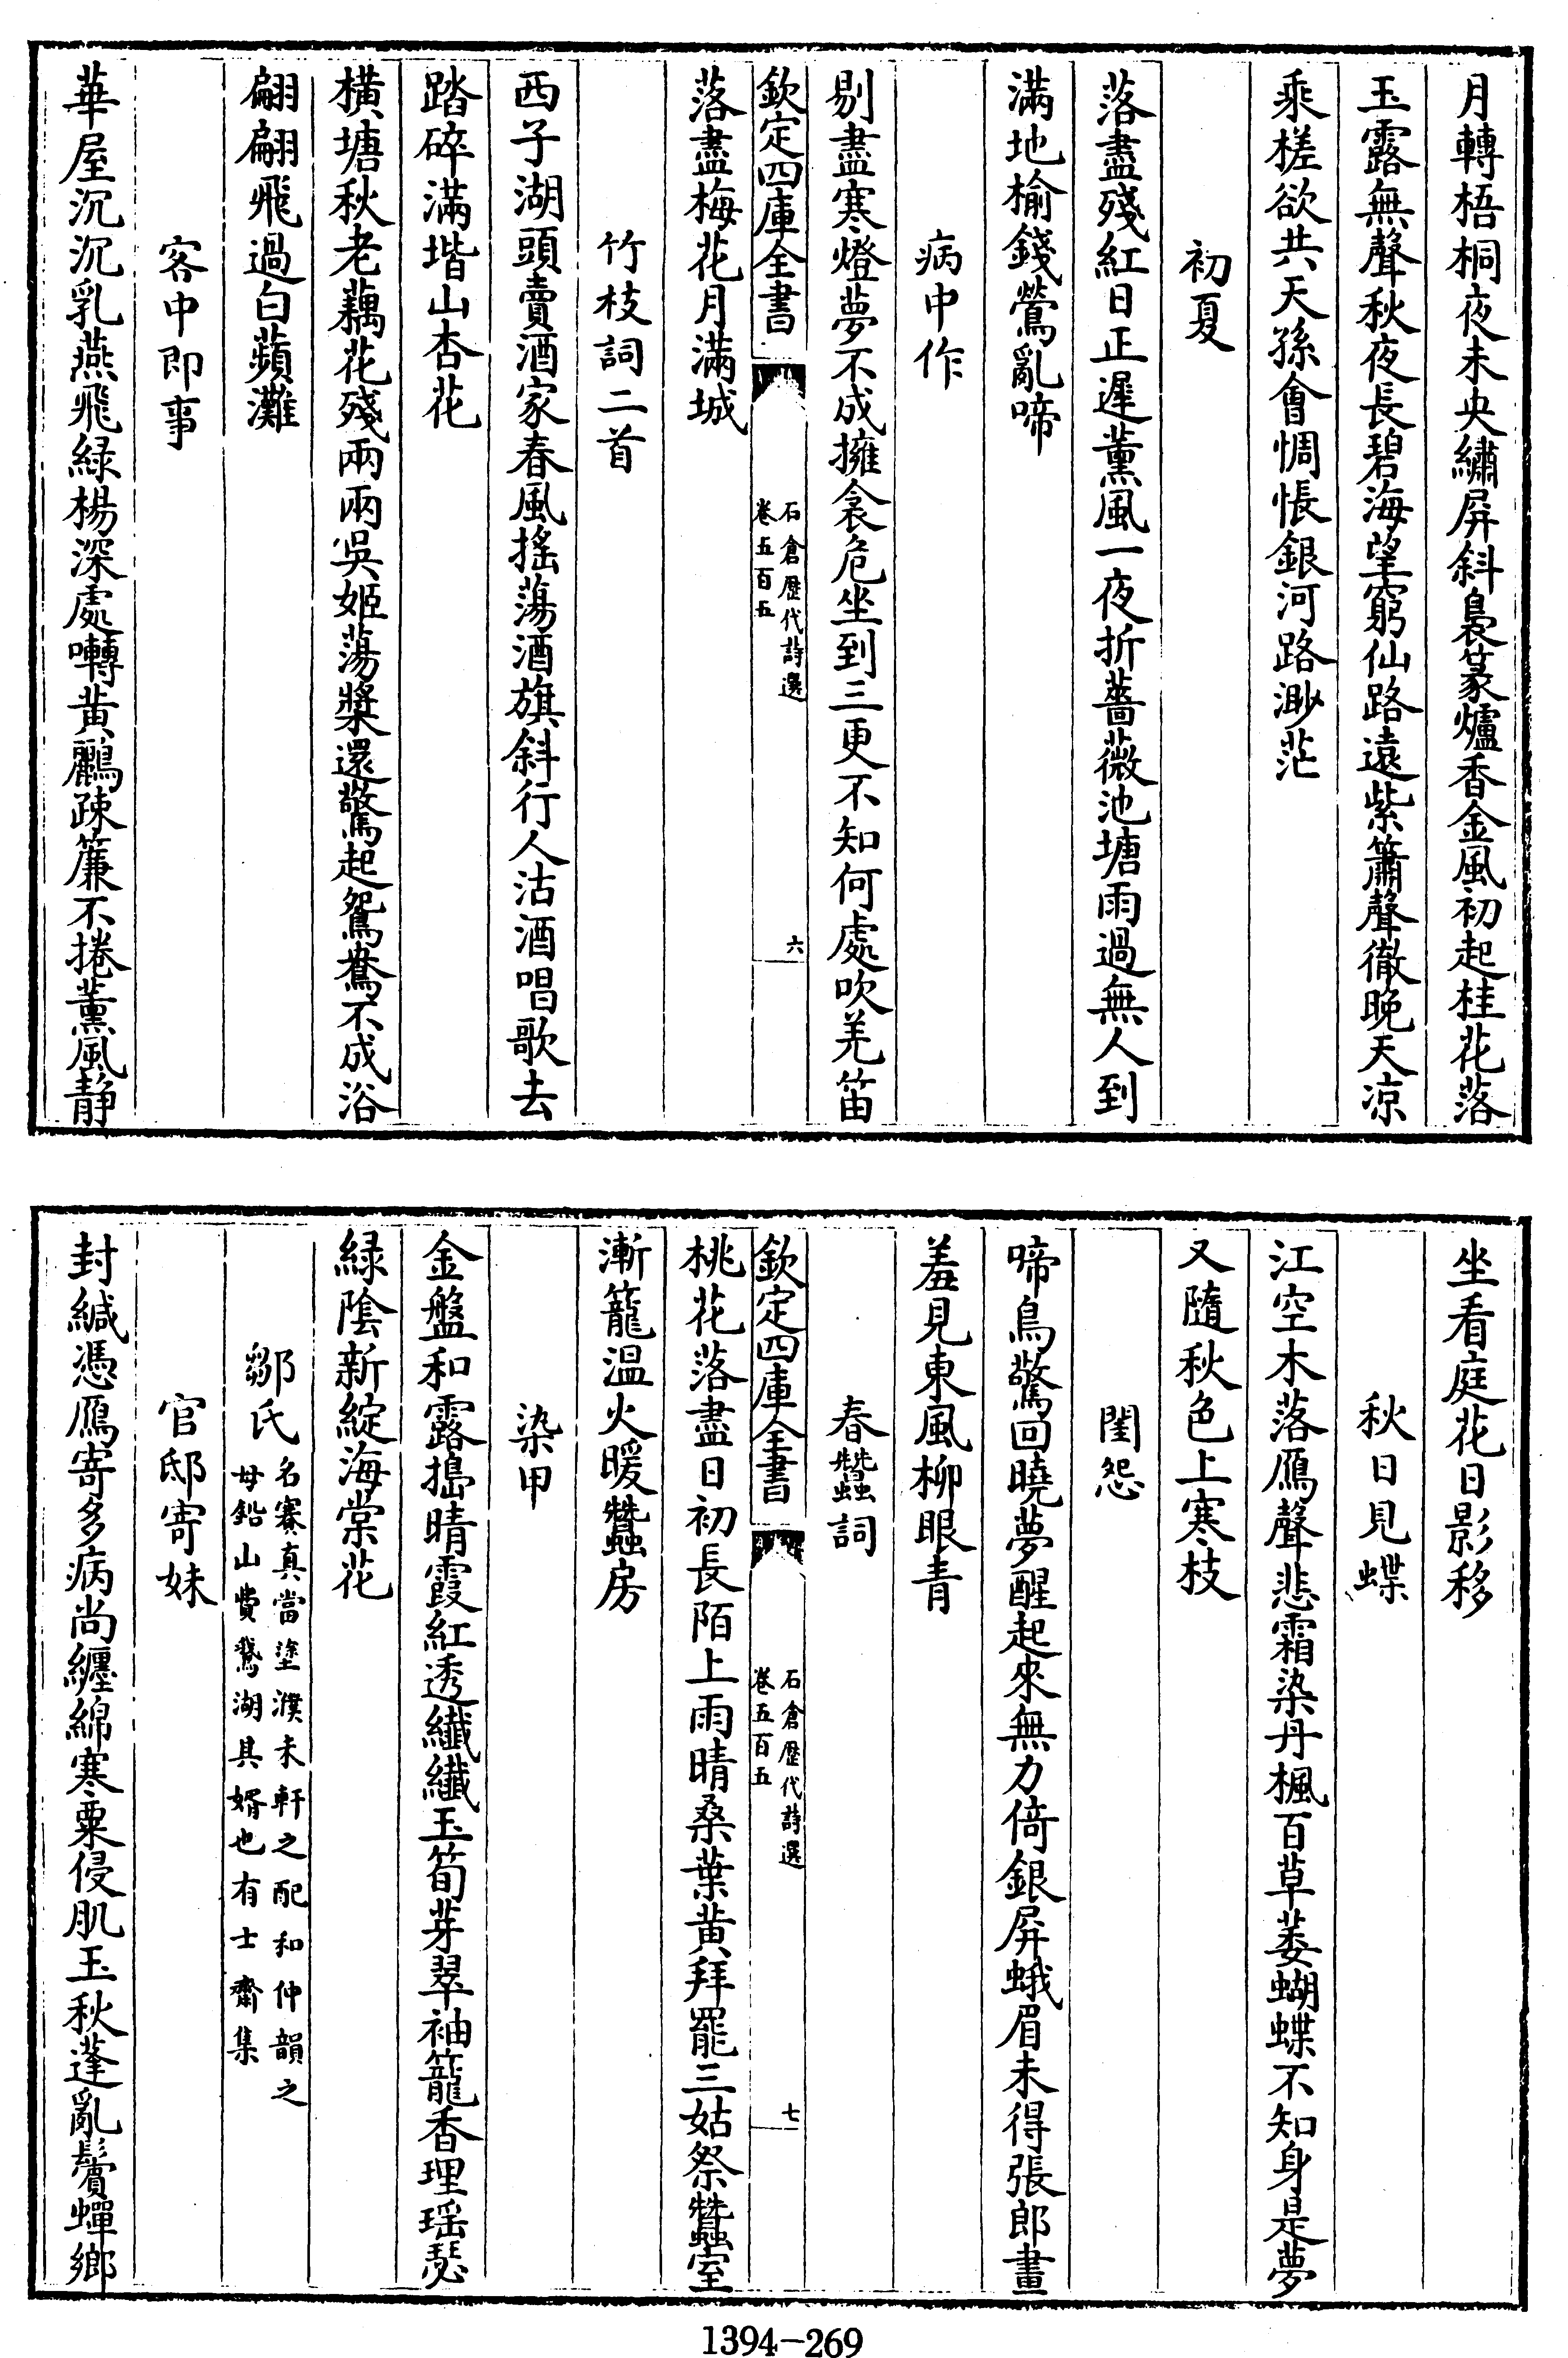 月轉梧桐夜未央繡屏斜裊篆爐香金風初起桂花落
玉露無聲秋夜長碧海望窮仙路遠紫簫聲徹晚天凉
乘槎欲共天孫會惆悵銀河路渺茫
初夏
落盡殘紅日正遲薰風一夜折薔薇池塘雨過無人到
滿地榆錢鶯亂啼
病中作
剔盡寒燈夢不成擁衾危坐到三更不知何處吹羌笛
欽定四庫全書
石倉歷代詩選
卷五百五
六
落盡梅花月滿城
竹枝詞二首
西子湖頭賣酒家春風搖蕩酒旗斜行人沽酒唱歌去
踏碎滿堦山杏花
橫塘秋老藕花殘兩兩吳姬蕩槳還驚起鴛鴦不成浴
翩翩飛過白蘋灘
客中即事
華屋沉沉乳燕飛緑楊深處囀黃鸝疎簾不捲薰風靜
坐看庭花日影移
秋日見蝶
江空木落鴈聲悲霜染丹楓百草萎蝴蝶不知身是夢
又隨秋色上寒枝
閨怨
啼鳥驚回曉夢醒起來無力倚銀屏蛾眉未得張郎畫
羞見東風柳眼青
春蠶詞
欽定四庫全書
石倉歷代詩選
卷五百五
七
桃花落盡日初長陌上雨晴桑葉黃拜罷三姑祭蠶室
漸籠温火暖蠶房
染甲
金盤和露搗晴霞紅透纖纖玉筍芽翠袖籠香理瑶瑟
緑陰新綻海棠花
鄒氏
名賽真當塗濮未軒之配和仲韻之
母鉛山費鵞湖其婿也有士齋集
官邸寄妹
封緘憑鴈寄多病尚纏綿寒粟侵肌玉秋蓬亂鬢蟬鄉
1394-269